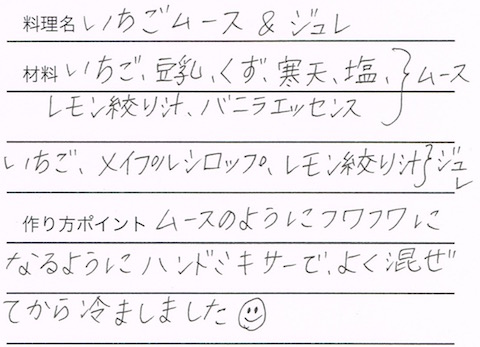 料理名 いちごムース & ジュレ
材料 いちご、豆乳、くず、寒天、塩、}ムース
レモン絞り汁、バニラエッセンス
いちご、メイプルシロップ、レモン絞り汁}ジュレ
作り方ポイント ムースのようにフワフワに
なるようにハンドミキサーで、よく混ぜ
てから冷ましました☺